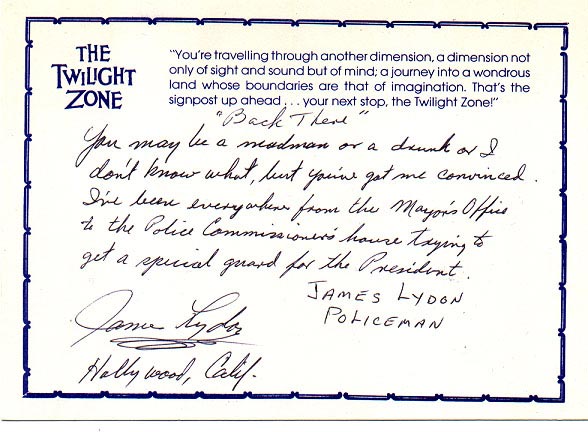 THE
TWILIGHT
ZONE
"You're travelling through another dimension, a dimension not
only of sight and sound but of mind; a journey into a wondrous
land whose boundaries are that of imagination. That's the
signpost up ahead . . . your next stop, the Twilight Zone!"
"Back There"
You may be a madman or a drunk or I
don't know what, but you've got me convinced.
I've been everywhere from the Mayor's Office
to the Police Commissioner's house trying to
get a special guard for the President.
JAMES LYDON
POLICEMAN
James Lydon
Hollywood, Calif.